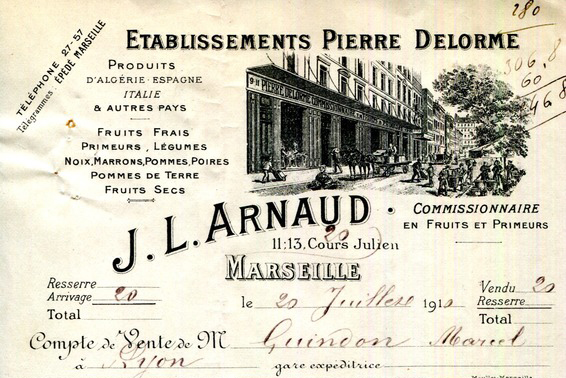 TÉLÉPHONE 27-57
Télégrammes: ÉPÈDÉ MARSEILLE
ETABLISSEMENTS PIERRE DELORME
PRODUITS
D'ALGÉRIE - ESPAGNE
ITALIE
& AUTRES PAYS
FRUITS FRAIS
PRIMEURS, LÉGUMES
NOIX, MARRONS, POMMES, POIRES
POMMES DE TERRE
FRUITS SECS
280
306,8
60
46,8
PIERRE DELORME, COMMISSIONNAIRE
J. L. ARNAUD
COMMISSIONNAIRE
EN FRUITS ET PRIMEURS
20
11-13, Cours Julien
MARSEILLE
Resserre
Arrivage 20
Total
le 20 Juillet 191
Vendu 20
Resserre
Total
Compte de Vente de M Guindon Marcel
à Lyon gare expéditrice